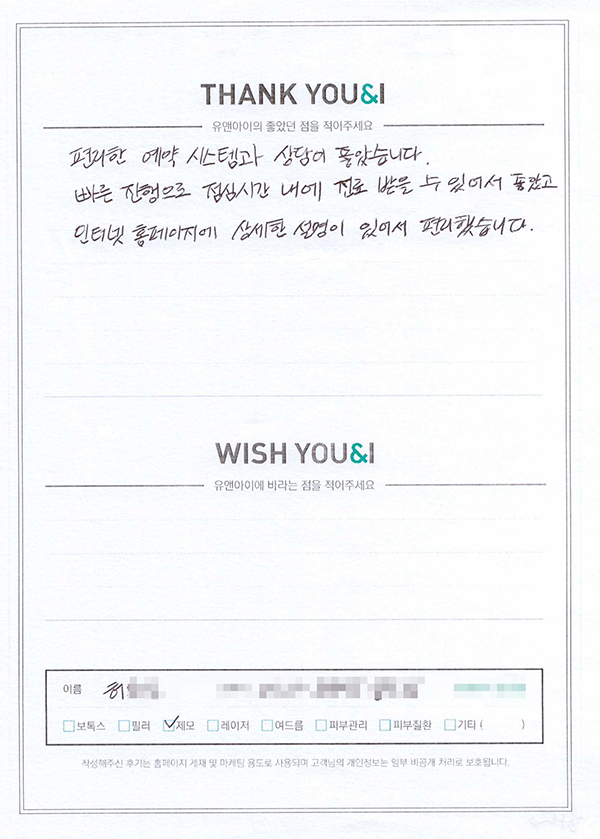 THANK YOU&I
유앤아이의 좋았던 점을 적어주세요
편리한 예약 시스템과 상담이 좋았습니다.
빠른 진행으로 점심시간 내에 진료 받을 수 있어서 좋았고
인터넷 홈페이지에 상세한 설명이 있어서 편리했습니다.
WISH YOU&I
유앤아이에 바라는 점을 적어주세요
이름 허
보톡스 필러 제모 레이저 여드름 피부관리 피부질환 기타 ( )
작성해주신 후기는 홈페이지 게재 및 마케팅 용도로 사용되며 고객님의 개인정보는 일부 비공개 처리로 보호됩니다.